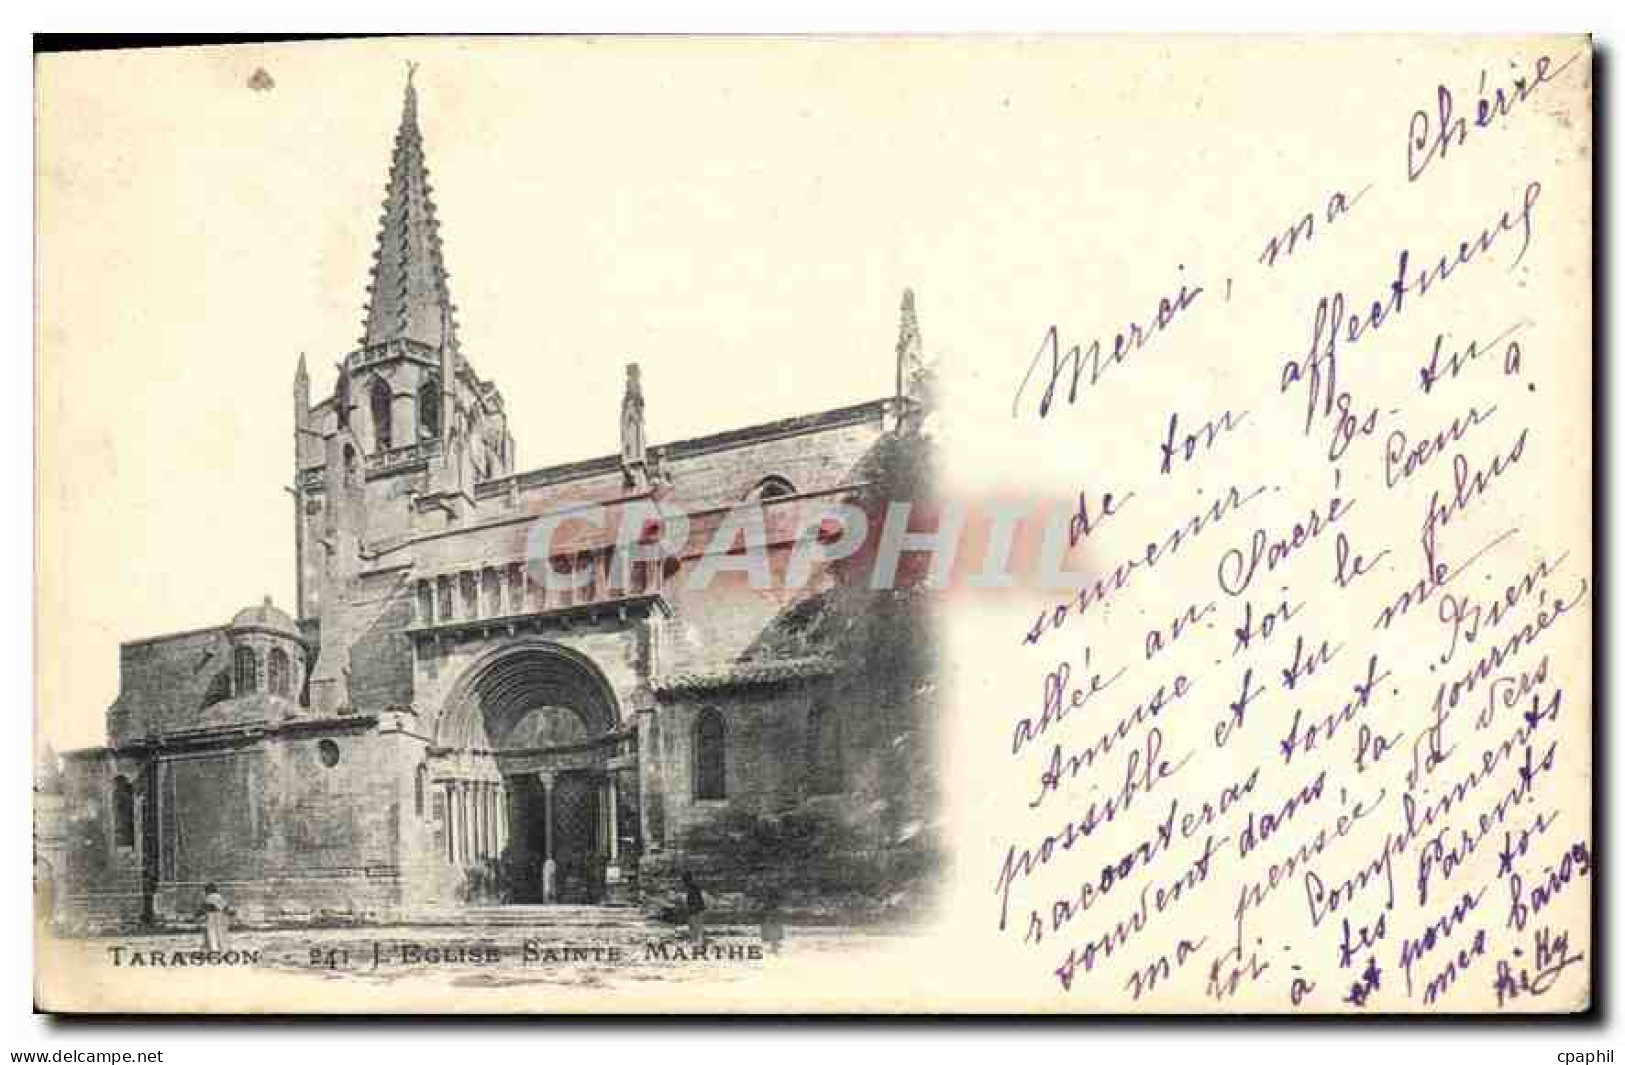 Merci, ma Chérie
de ton affectueux
souvenir. Es-tu
allée au Sacré Cœur à
Amuse-toi le plus
possible et tu me
raconteras tout. Bien
souvent dans la journée
ma pensée va vers
toi. Compliments
à tes Parents
et pour toi
mes bais
CPAPHIL
TARASCON - 241 L'EGLISE SAINTE MARTHE
www.delcampe.net
cpaphil